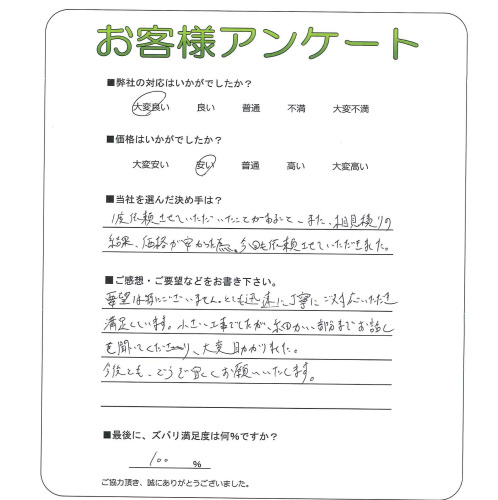 お客様アンケート
■弊社の対応はいかがでしたか？
大変良い 良い 普通 不満 大変不満
■価格はいかがでしたか？
大変安い 安い 普通 高い 大変高い
■当社を選んだ決め手は？
1度依頼させていただいたことがあること、また、相見積りの
結果、価格が安かった為。今回も依頼させていただきました。
■ご感想・ご要望などをお書き下さい。
要望は特にございません。とても迅速に丁寧にご対応いただき
満足しています。小さい工事でしたが、細かい部分までお話し
を聞いてくださり、大変助かりました。
今後とも、どうぞ宜しくお願いいたします。
■最後に、ズバリ満足度は何％ですか？
100 ％
ご協力頂き、誠にありがとうございました。